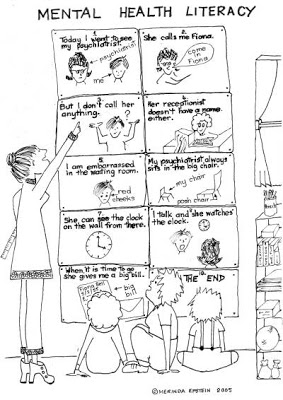 MENTAL HEALTH LITERACY
1.
Today I went to see
my psychiatrist.
psychiatrist
me
2.
She calls me Fiona.
come
in
Fiona
3.
But I don't call her
anything.
?
4.
Her receptionist
doesn't have a name
either.
5.
I am embarrassed
in the waiting room.
red
cheeks
My psychiatrist always
sits in the big chair.
my chair
posh chair
She can see the clock
on the wall from there.
I talk and she watches
the clock.
When it is time to go
she gives me a big bill.
big
bill
10.
THE END
©MERINDA EPSTEIN 2005